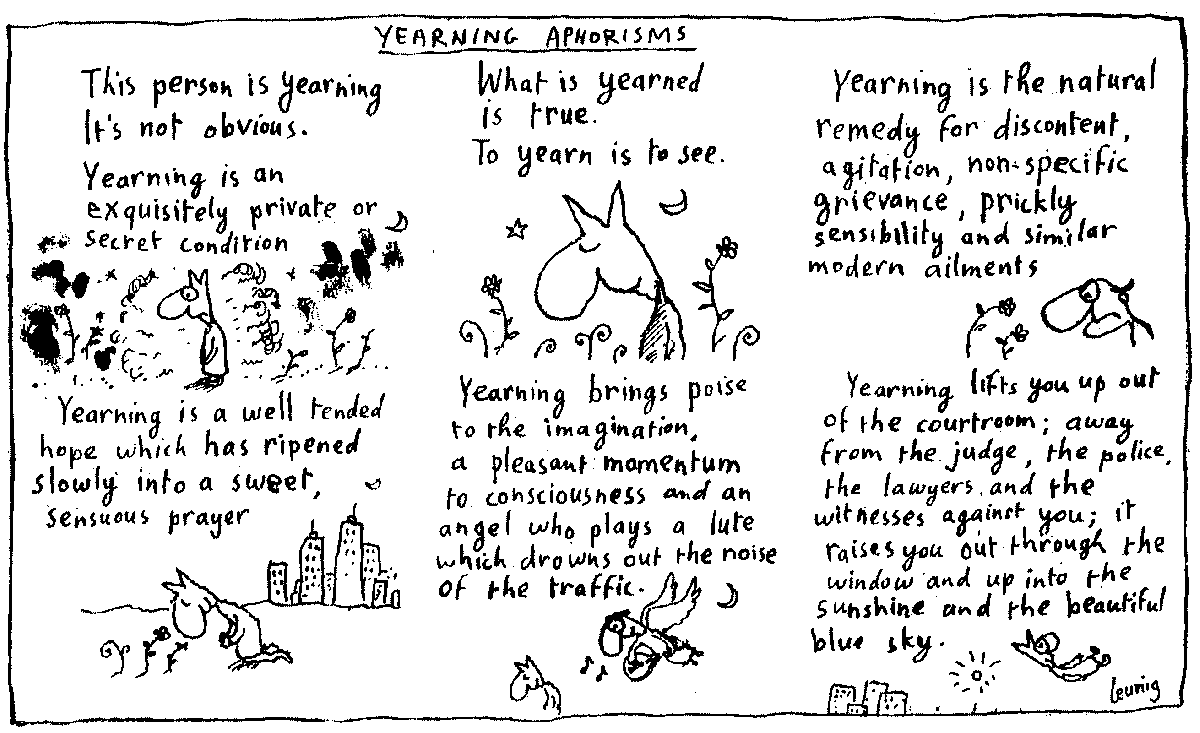 YEARNING APHORISMS
This person is yearning
It's not obvious.
Yearning is an
exquisitely private or
secret condition
Yearning is a well tended
hope which has ripened
slowly into a sweet,
sensuous prayer
What is yearned
is true.
To yearn is to see.
Yearning brings poise
to the imagination,
a pleasant momentum
to consciousness and an
angel who plays a lute
which drowns out the noise
of the traffic.
Yearning is the natural
remedy for discontent,
agitation, non-specific
grievance, prickly
sensibility and similar
modern ailments
Yearning lifts you up out
of the courtroom; away
from the judge, the police,
the lawyers and the
witnesses against you; it
raises you out through the
window and up into the
sunshine and the beautiful
blue sky.
Leunig